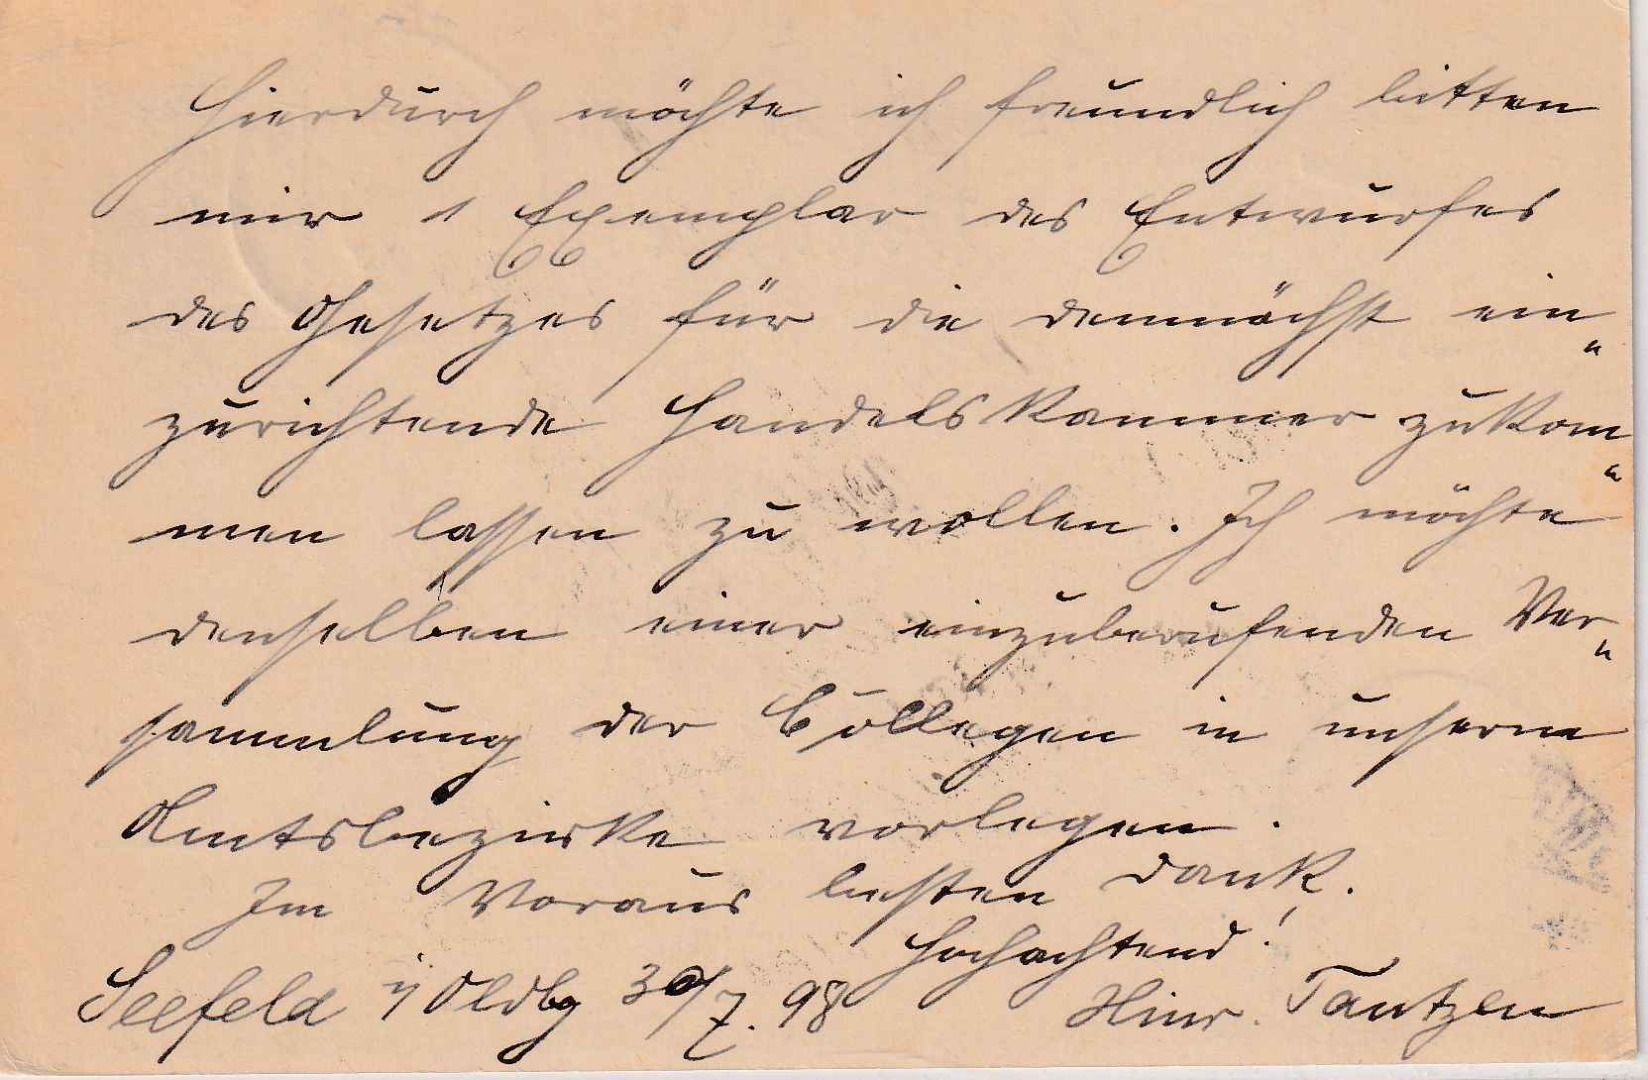 Hierdurch möchte ich freundlich bitten
mir 1 Exemplar des Entwurfes
des Gesetzes für die demnächst ein„
zurichtende Handelskammer zukom„
men lassen zu wollen. Ich möchte
denselben einer einzuberufenden Ver„
sammlung der Collegen in unserm
Amtsbezirke vorlegen.
Im Voraus besten Dank.
Hochachtend!
Seefeld i/Oldbg 30/7. 98 Hinr. Tantzen